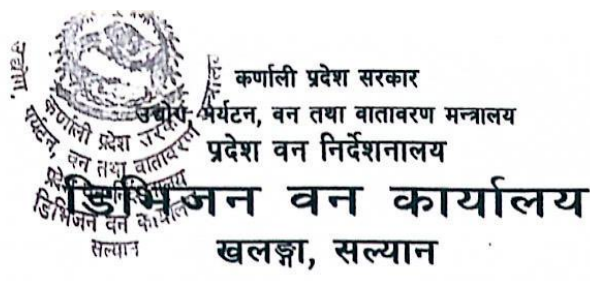 कर्णाली प्रदेश सरकार
उद्योग, पर्यटन, वन तथा वातावरण मन्त्रालय
प्रदेश वन निर्देशनालय
डिभिजन वन कार्यालय
खलङ्गा, सल्यान
कर्णाली प्रदेश सरकार
उद्योग, पर्यटन, वन तथा वातावरण
डिभिजन वन कार्यालय
सल्यान